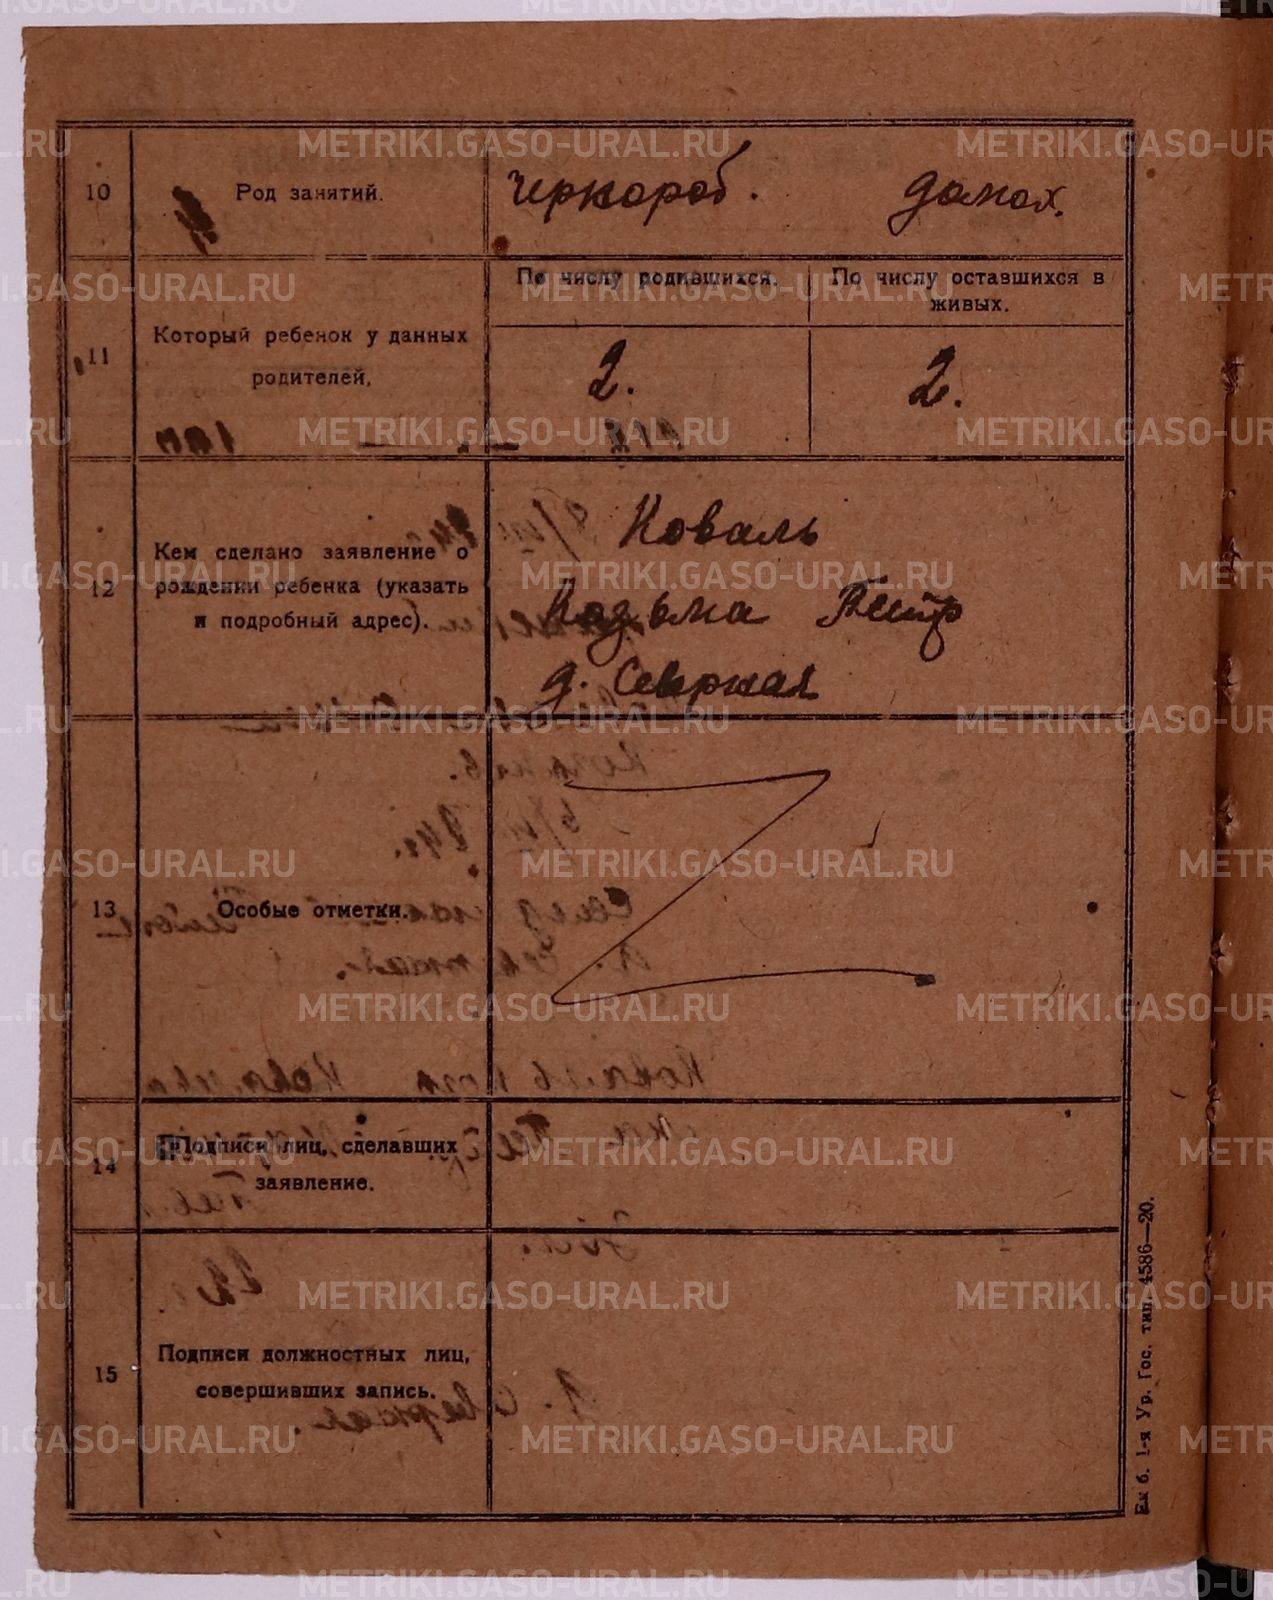 10 Род занятий. чернораб. домох.
11 Который ребенок у данных родителей.
По числу родившихся. По числу оставшихся в живых.
2. 2.
12 Кем сделано заявление о
рождении ребенка (указать
и подробный адрес).
Коваль
Козьма Петр
д. Северная
13 Особые отметки.
14 Подписи лиц, сделавших
заявление.
15 Подписи должностных лиц,
совершивших запись.
Ек б. 1-я Ур. Гос. тип. 4586—20.
METRIKI.GASO-URAL.RU